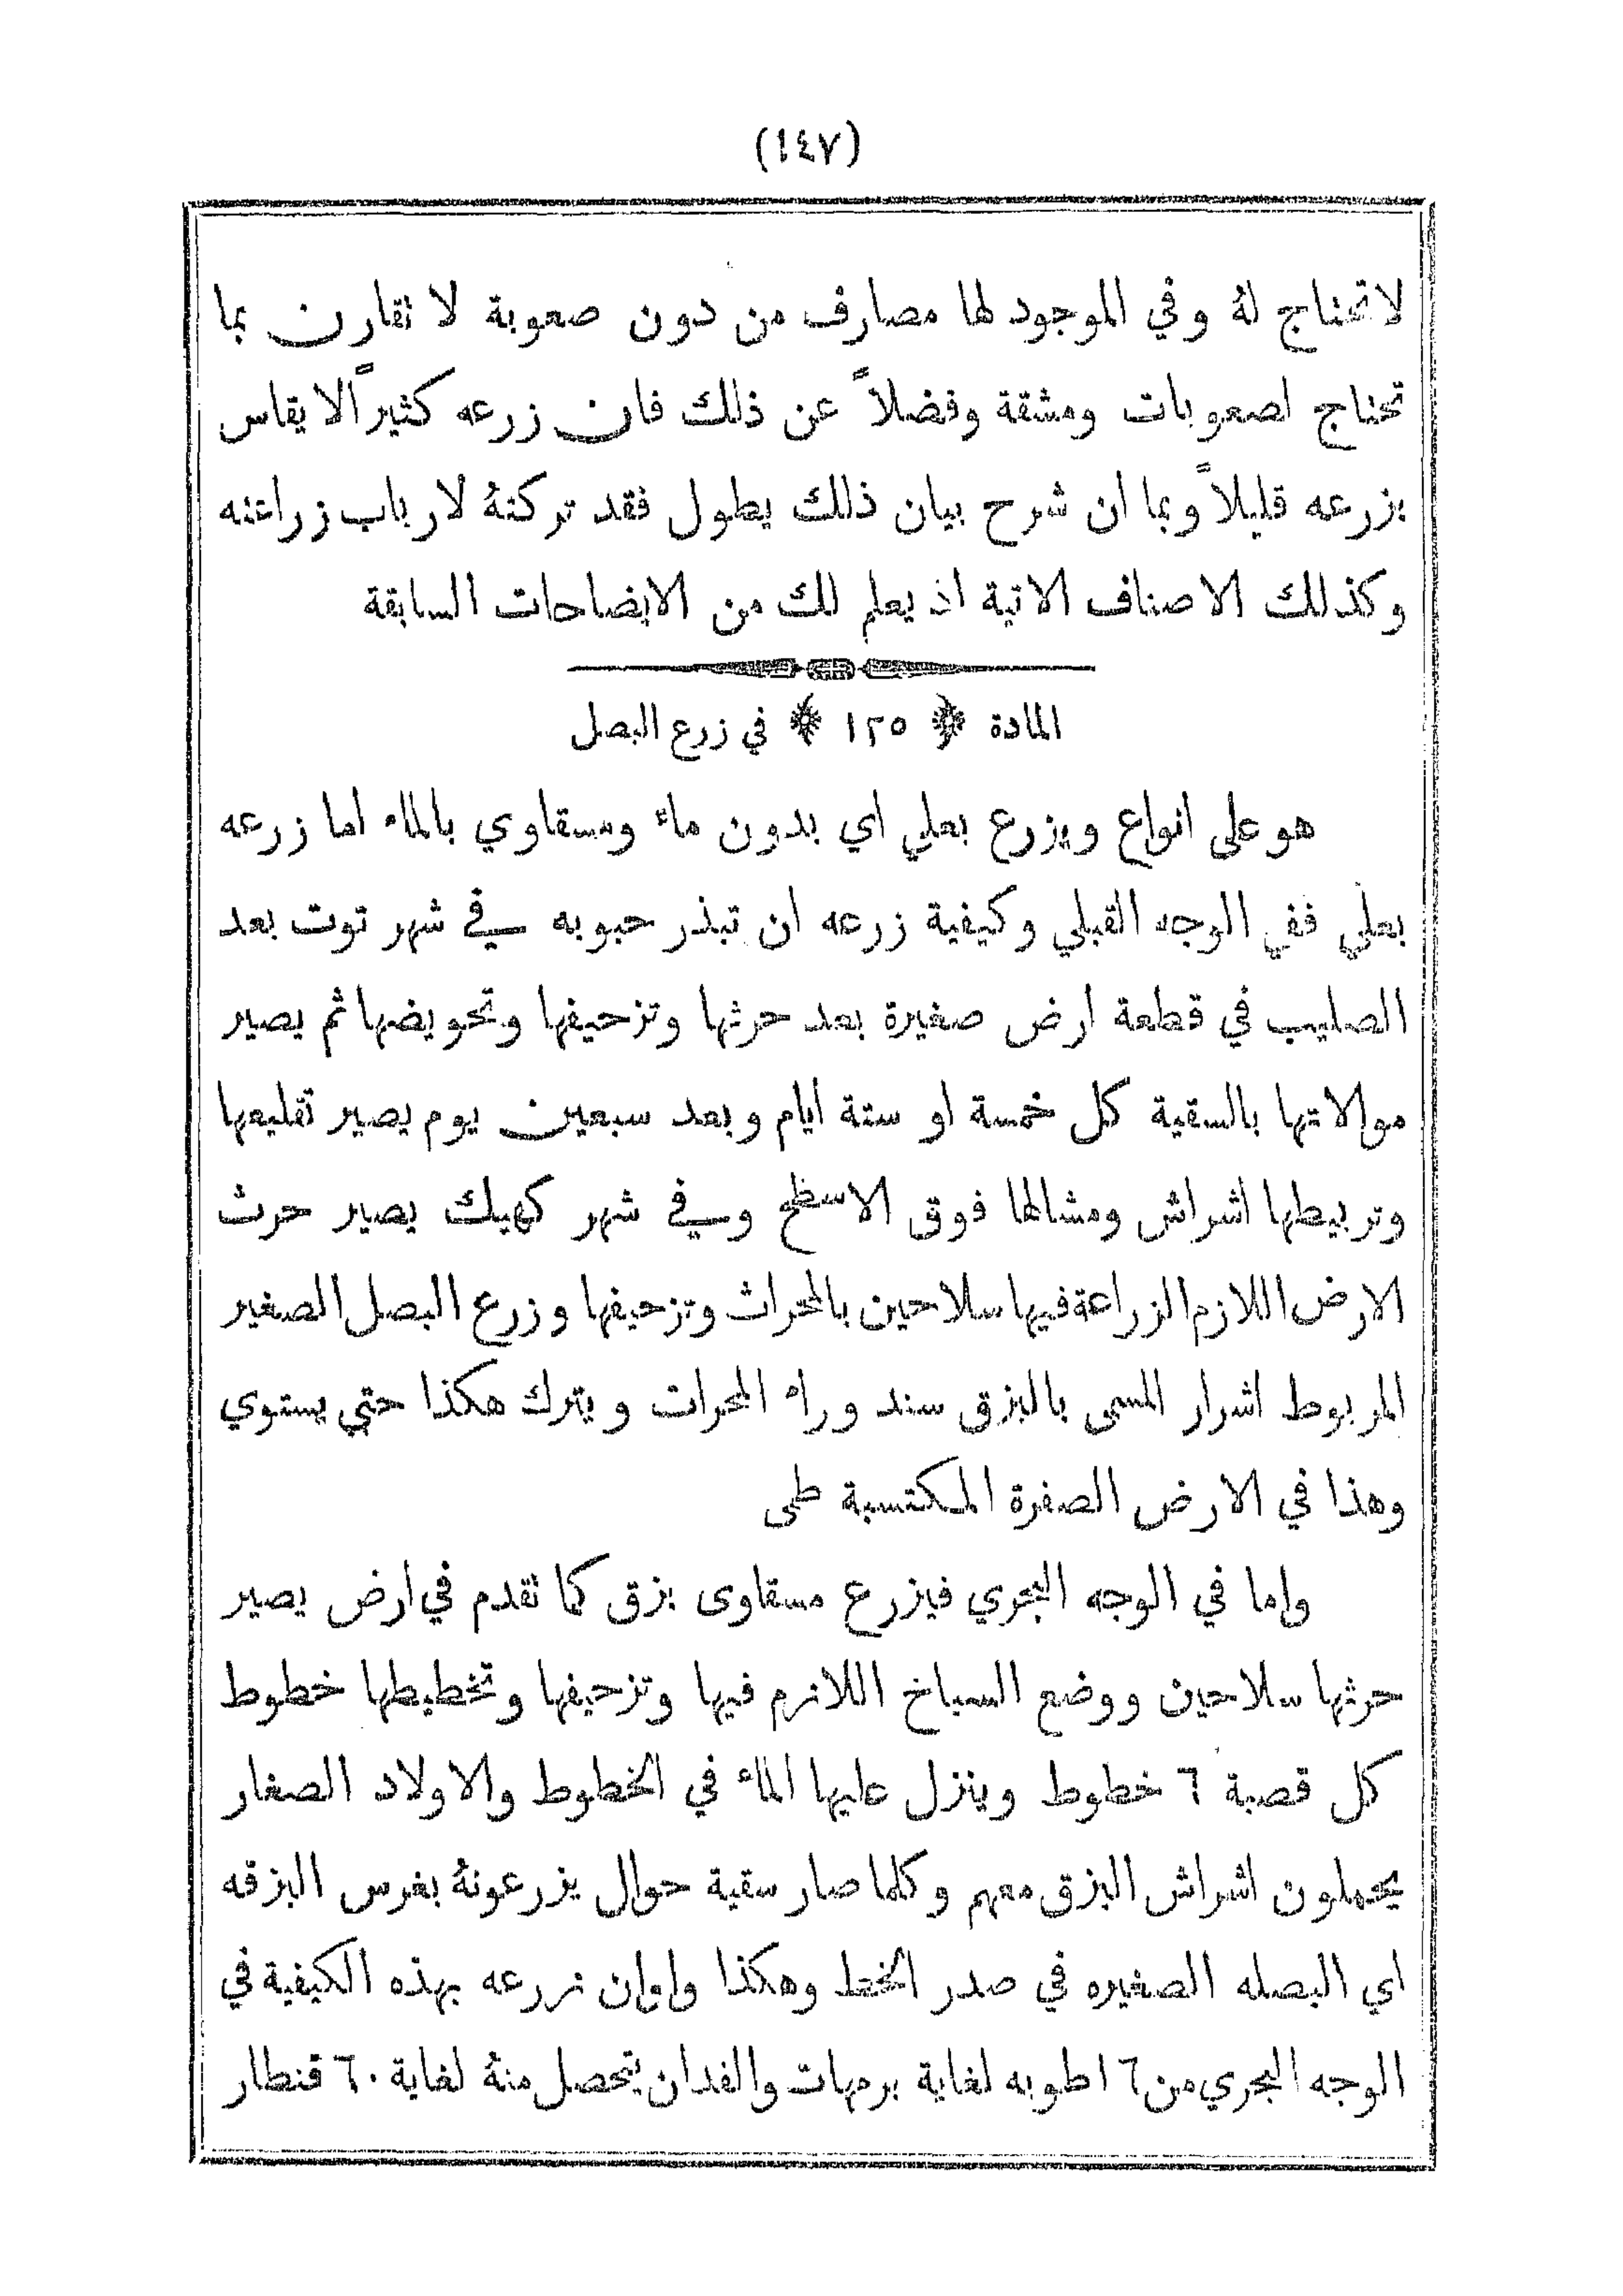 (١٤٧)
لا تحتاج لهُ وفي الموجود لها مصارف من دون صعوبة لا تقارن بما
تحتاج لصعوبات ومشقة وفضلاً عن ذلك فان زرعه كثيراً لا يقاس
بزرعه قليلاً وبما ان شرح بيان ذلك يطول فقد تركتهُ لارباب زراعته
وكذلك الاصناف الاتية اذ يعلم لك من الايضاحات السابقة
المادة ﴿ ١٢٥ ﴾ في زرع البصل
هو على انواع ويزرع بعلي اي بدون ماء ومسقاوي بالماء اما زرعه
بعلي ففي الوجه القبلي وكيفية زرعه ان تبذر حبوبه في شهر توت بعد
الصليب في قطعة ارض صغيرة بعد حرثها وتزحيفها وتحويضها ثم يصير
موالاتها بالسقية كل خمسة او ستة ايام وبعد سبعين يوم يصير تقليعها
وتربيطها اشراش ومشالها فوق الاسطح وفي شهر كهيك يصير حرث
الارض اللازم الزراعة فيها سلاحين بالمحراث وتزحيفها وزرع البصل الصغير
المربوط اشرار المسمى بالبزق سند وراء المحرات ويترك هكذا حتي يستوي
وهذا في الارض الصفرة المكتسبة طمى
واما في الوجه البحري فيزرع مسقاوى بزق كما تقدم في ارض يصير
حرثها سلاحين ووضع السباخ اللازم فيها وتزحيفها وتخطيطها خطوط
كل قصبة ٦ خطوط وينزل عليها الماء في الخطوط والاولاد الصغار
يحملون اشراش البزق معهم وكلما صار سقية حوال يزرعونهُ بغرس البزقه
اي البصله الصغيره في صدر الخط وهكذا واوان زرعه بهذه الكيفية في
الوجه البحري من ١٦ طوبه لغاية برمهات والفدان يتحصل منهُ لغاية ٦٠ قنطار